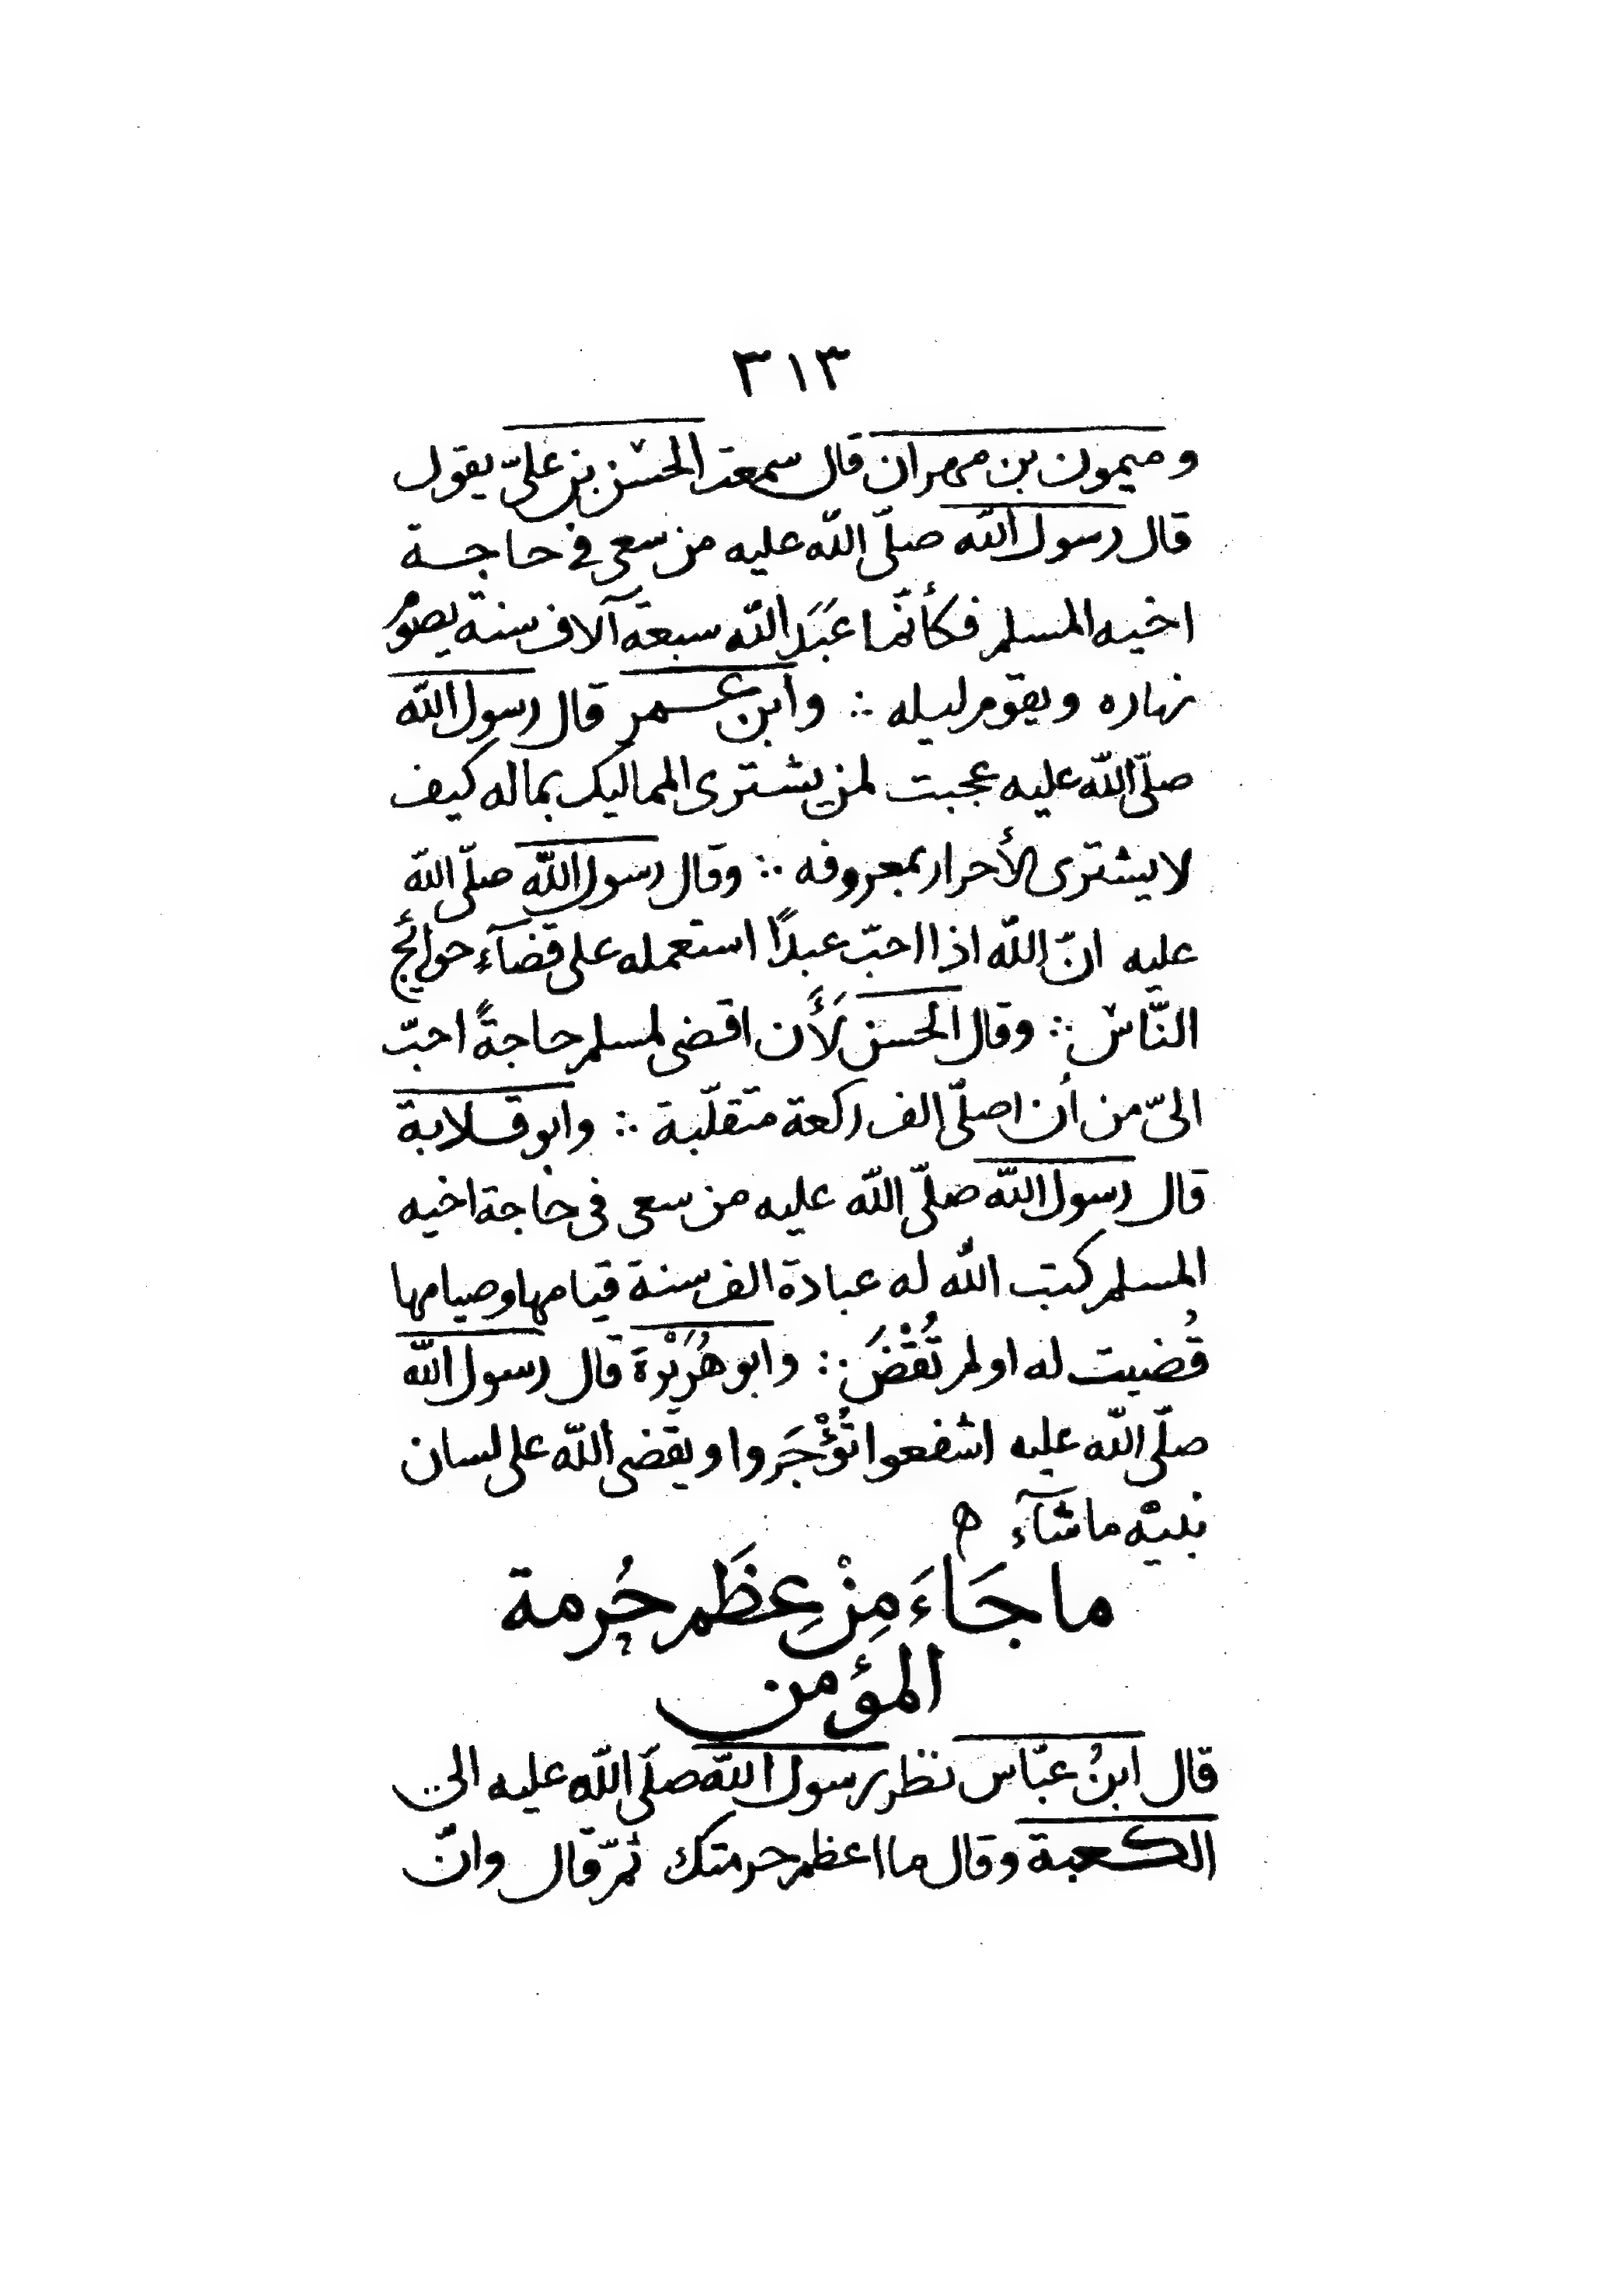 ٣١٣
وميمون بن مهران قال سمعت الحسن بن علىّ يقول
قال رسول الله صلّى الله عليه من سعى فى حاجة
اخيه المسلم فكأنّما عَبَدَ الله سبعة آلاف سنة يصومُ
نهاره ويقوم ليله ∴ وابن عمر قال رسول الله
صلّى الله عليه عجبت لمن يشترى المماليك بماله كيف
لا يشترى الأحرار بمعروفه ∴ وقال رسول الله صلّى الله
عليه انّ الله اذا احبّ عبدًا استعمله على قضآء حوائج
النّاس ∴ وقال الحسن لَأَن اقضى لمسلم حاجةً احبّ
الىّ من أن اصلّى الف ركعة متقلّبة ∴ وابو قلابة
قال رسول الله صلّى الله عليه من سعى فى حاجة اخيه
المسلم كتب الله له عبادة الف سنة قيامها وصيامها
قُضيت له او لم تُقْضَ ∴ وابو هُرَيْرة قال رسول الله
صلّى الله عليه اشفعوا تُؤْجَروا ويقضى الله على لسان
نبيّه ما شآء
ما جَاءَ مِنْ عِظَم حُرمة
المؤمن
قال ابنُ عبّاس نظر رسول الله صلّى الله عليه الى
الكعبة وقال ما اعظم حرمتك ثمّ قال وانّ